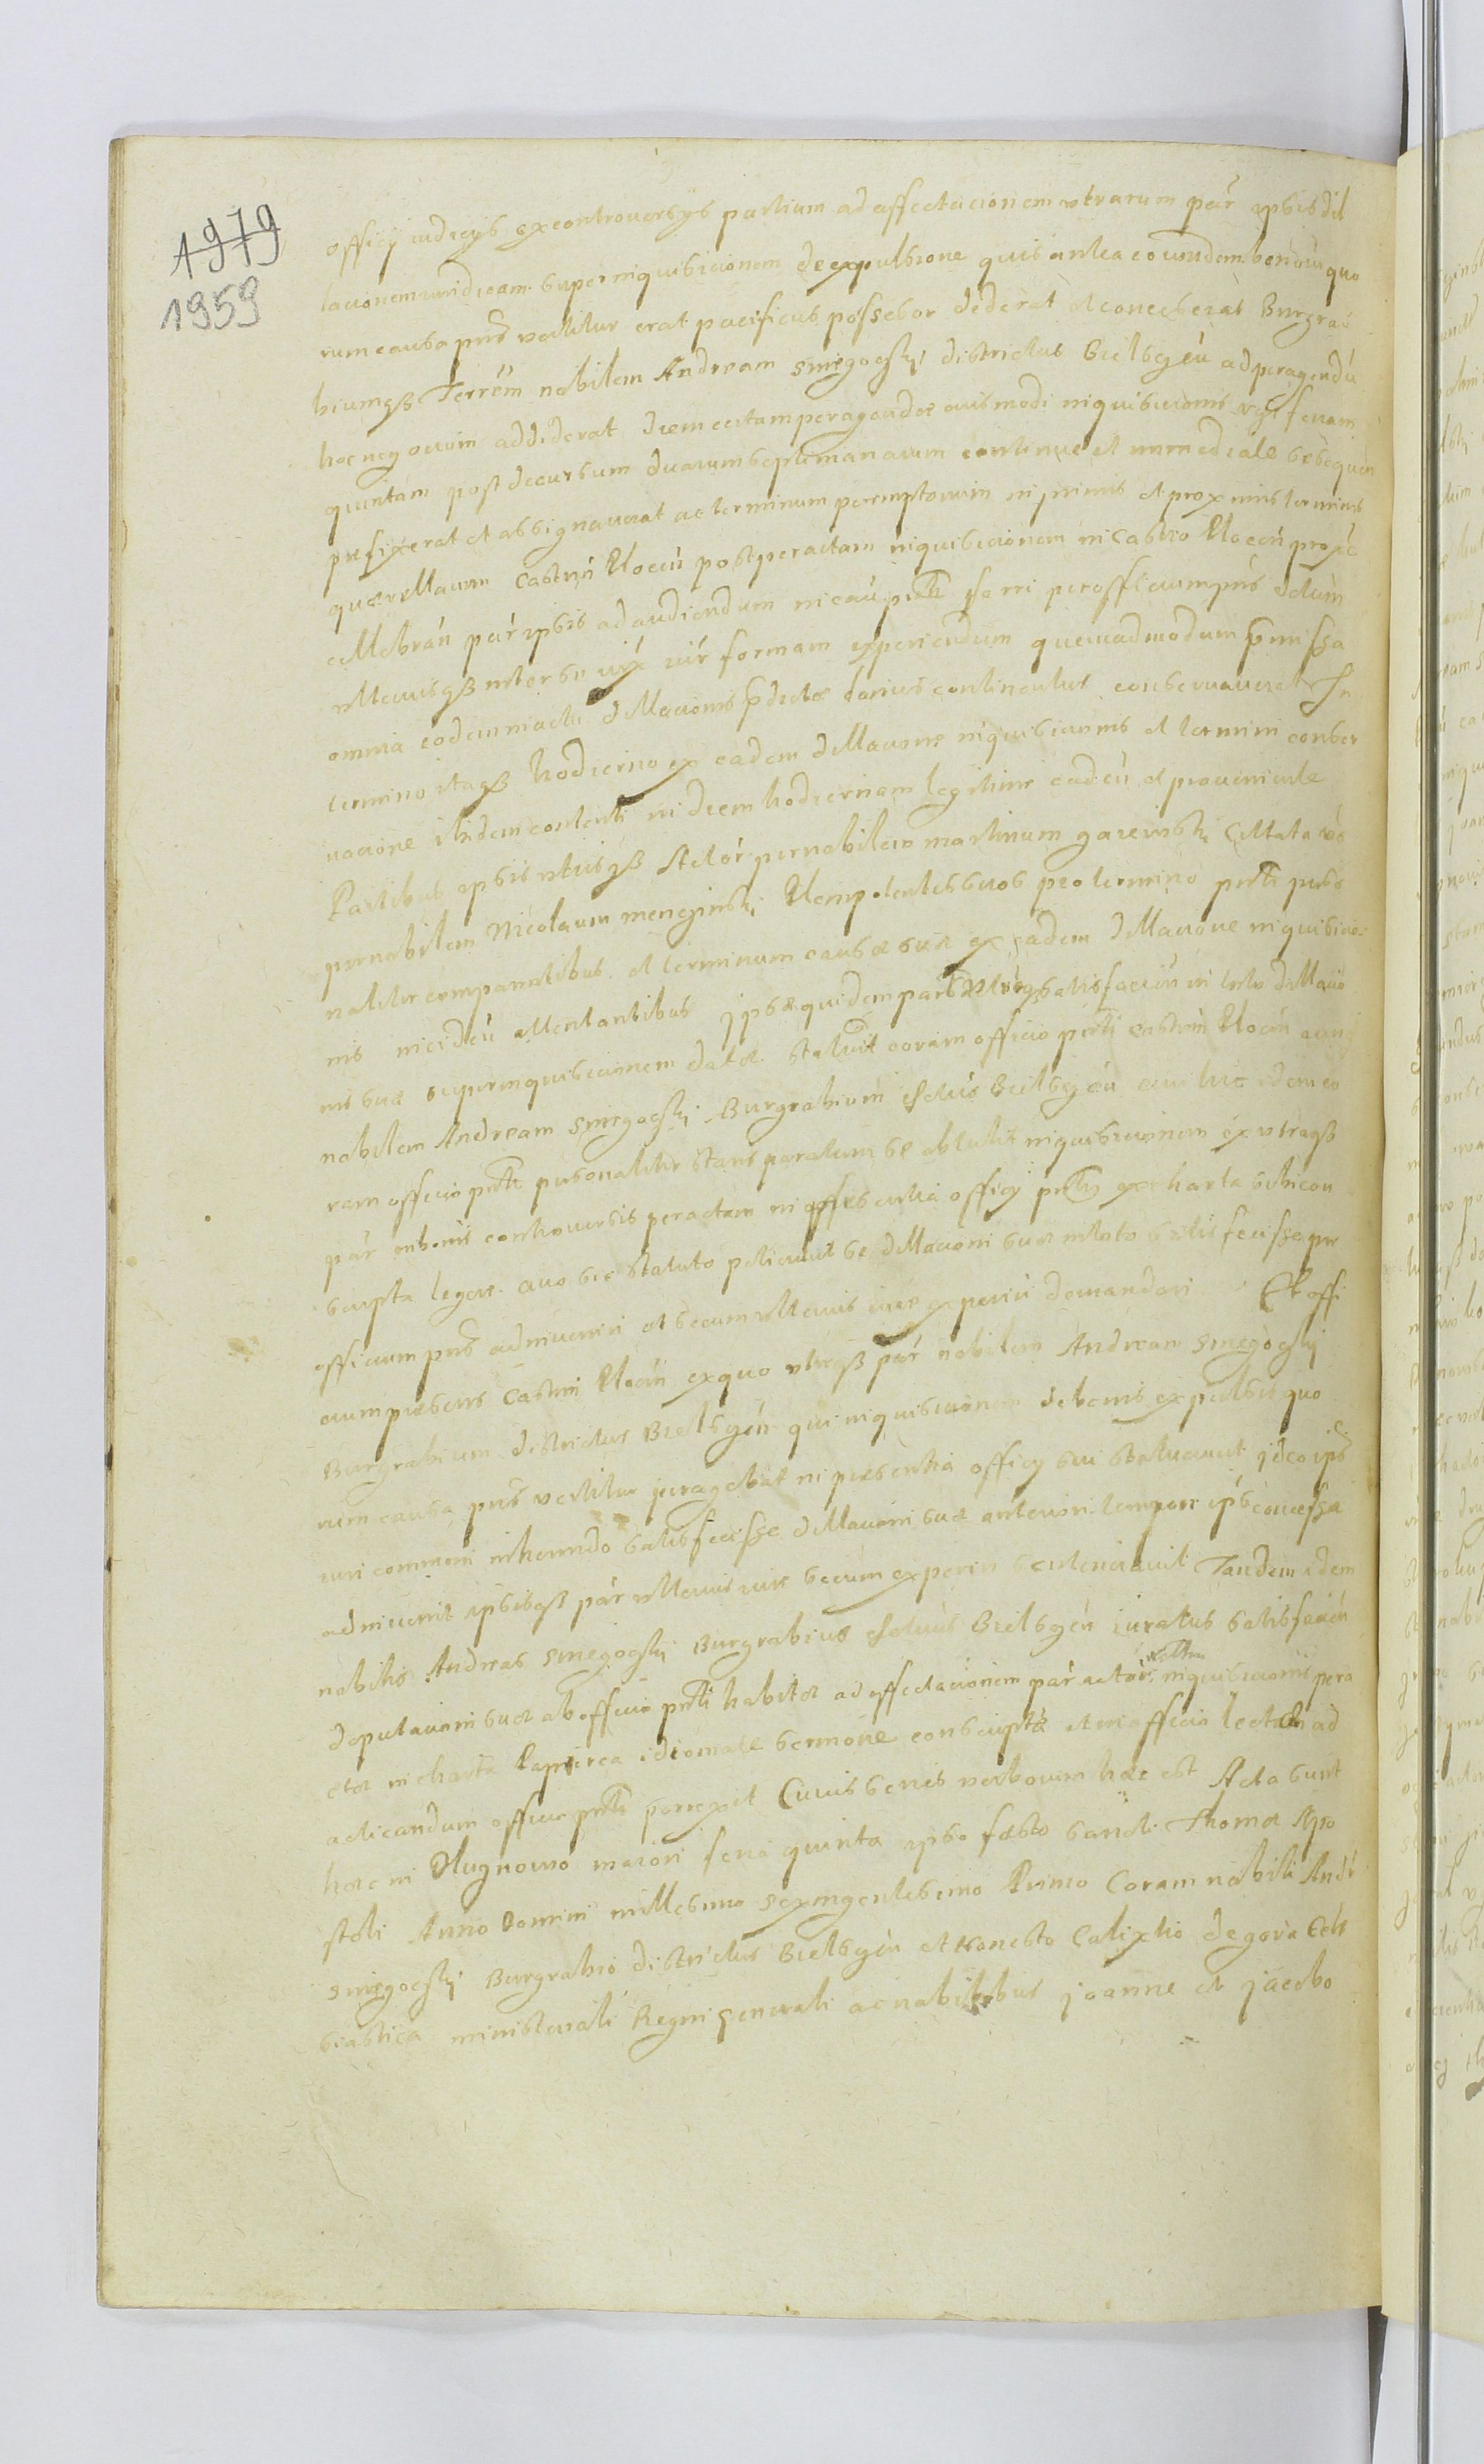 1979
1959
officÿ iudicÿs ex controuersÿs partium ad affectacionem utrarum par ipsis dil
lacionem iuridicam super inquisicionem de expulsione quis antea eorundem bonorum quo
rum causa pns vertitur erat pacificus possesor dederat et concesserat Burgra
biumqz Terrem nobilem Andream Smegoczki districtus Bielsgen ad peragendu
hoc negocium addiderat diem certam peragendae eiusmodi inquisicionis feriam
quintam post decursum duarum septimanarum continue et immediate sesequen
prefixerat et assignauerat ac terminum peremptorium in primis et proximis terminis
querellarum Castren Plocen post peractam inquisicionem in Castro Plocen proxe
cellebran par ipsis ad audiendum in cau pnti ferri per officium pns
ulteriusqz inter se iure formam experiendum quemadmodum pmissa
omnia eodem in actu dillacionis pdictae lacius continentur conseruauerat In
termino itaqz hodierno ex eadem dillacione inquisicionis et termini conser
uacione ibidem contenti in diem hodiernam legitime caden et proueniente
Partibus ipsis utrisqz Actor per nobilem Martinum garewski Citata vo
per nobilem Nicolaum menczinski Plenipotentes suos pro termino pnti perso
naliter comparentibus et terminum causae suae ex eadem dillacione inquisicio
nis inciden attentantibus Ipsae quidem partes satisfacien in toto dillacio
ni suae super inquisicionem datae statuit coram officio pnti castren Plocen
nobilem Andream Smegoczki Burgrabium Bielsgen qui hic idem co
ram officio pnti personaliter stans paratum se obtulit inquisicionem ex utraqz
par in bonis controuersis peractam in officy pntis ex charta sibi con
scripta legere quo sic statuto petierunt se dillacioni suae in toto satis fecisse per
officium pns adinueniri et secum ulterius iure experiri demandari Et offi
cium praesens Castren Plocen ex quo utraqz par nobilem Andream Smegoczki
Burgrabium districtus Bielsgen qui inquisicionem de bonis expulsis quo
rum causa pns vertitur peragebat in praesentia officy sui statuerunt ideo ips
iuri communi inherendo satisfecisse dillacioni suae anteriori tempore ips concessa
adinuenit ipsisqz par ulterius iure secum experiri sentenciauit Tandem idem
nobilis Andreas Smegoczki Burgrabius Bielsgen iuratus satisfacien
deputacioni suae ab officio pnti habitae ad affectacionem par actor inquisicionis pera
ctae in charta Papirea idiomate sermone conscriptae et in officio lectae ad
acticandum officio pnti porrexit Cuius series verborum haec est Acta sunt
haec in Dlugnowo maiori feria quinta ipso festo sancti Thomae Apo
stoli Anno Domini millesimo sexingentesimo Primo Coram nobili Andr
Smegoczki Burgrabio districtus Bielsgen et honesto Calixtio de gora Ecle
siastica ministeriali Regni generali ac nobilibus Joanne et Jacobo